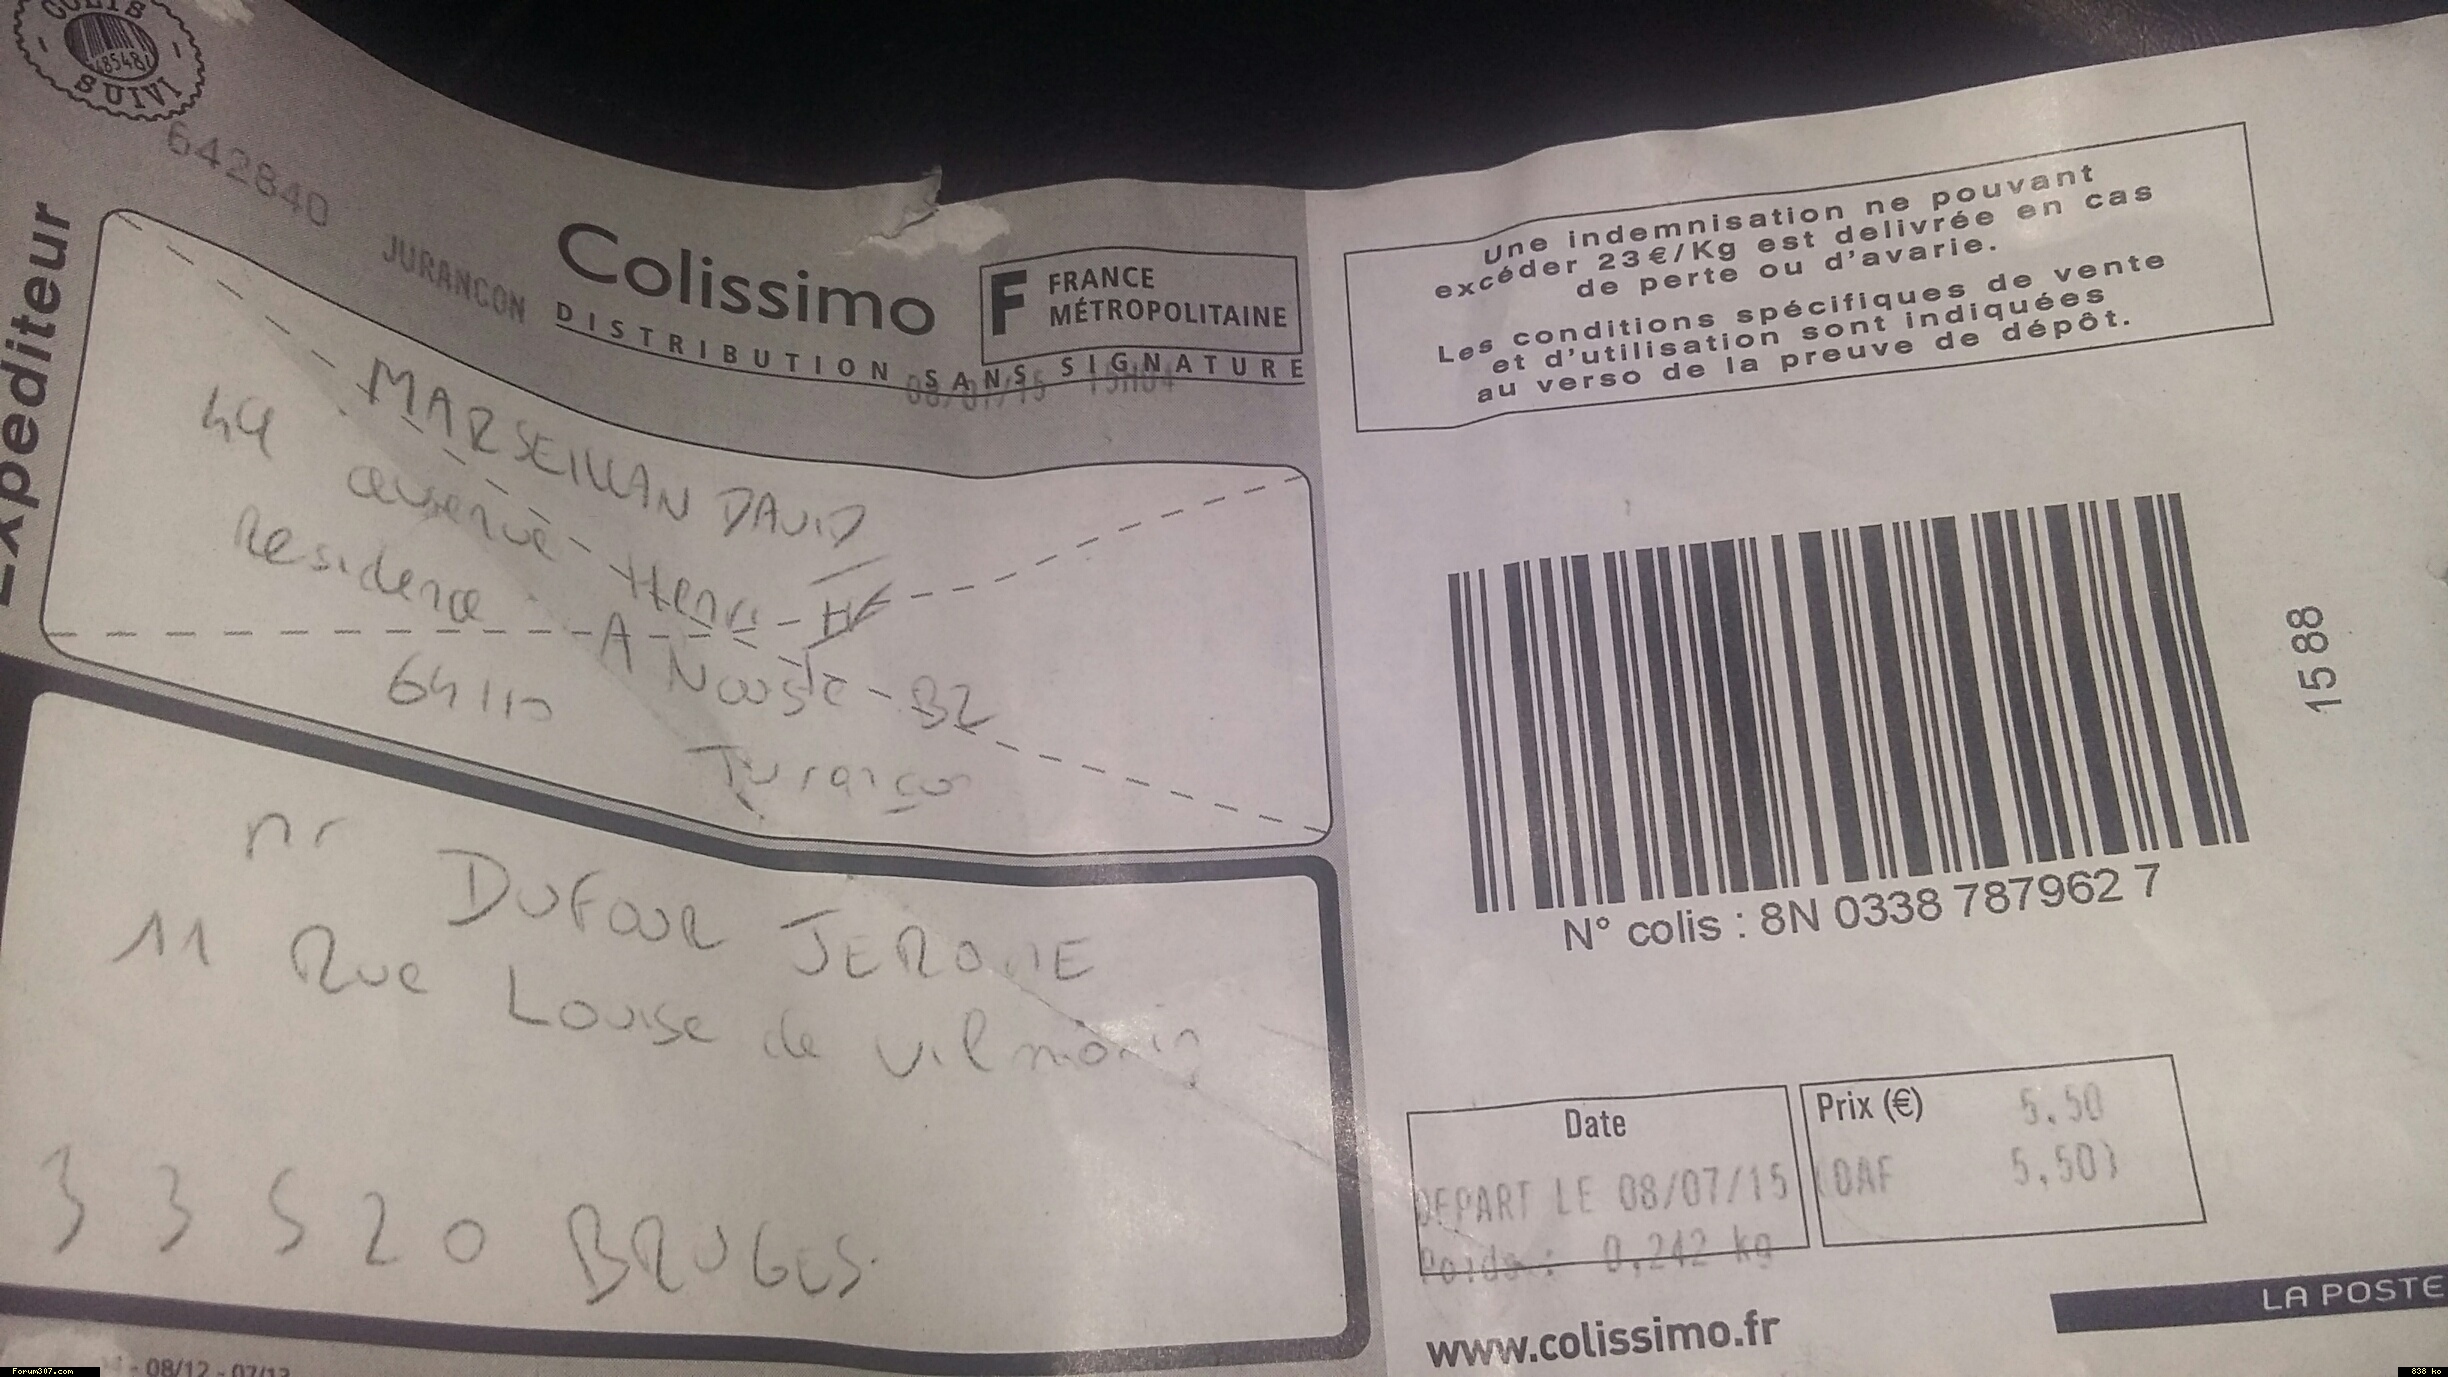 COLIS
485481
SUIVI
642840
JURANCON
Colissimo
F FRANCE
MÉTROPOLITAINE
DISTRIBUTION SANS SIGNATURE
08/07/15 15H04
Expediteur
MARSEILLAN DAVID
44 Henri
Residence A Nouste - B2
64110
Jurançon
mr DUFOUR JEROME
11 Rue Louise de Vilmorin
33520 BRUGES.
Une indemnisation ne pouvant
excéder 23€/Kg est delivrée en cas
de perte ou d'avarie.
Les conditions spécifiques de vente
et d'utilisation sont indiquées
au verso de la preuve de dépôt.
1588
N° colis : 8N 0338 787962 7
Date
DEPART LE 08/07/15
Poids : 0,242 kg
Prix (€) 5.50
(OAF 5,50)
www.colissimo.fr
LA POSTE
- 08/12 - 07/13
Forum307.com
838 ko